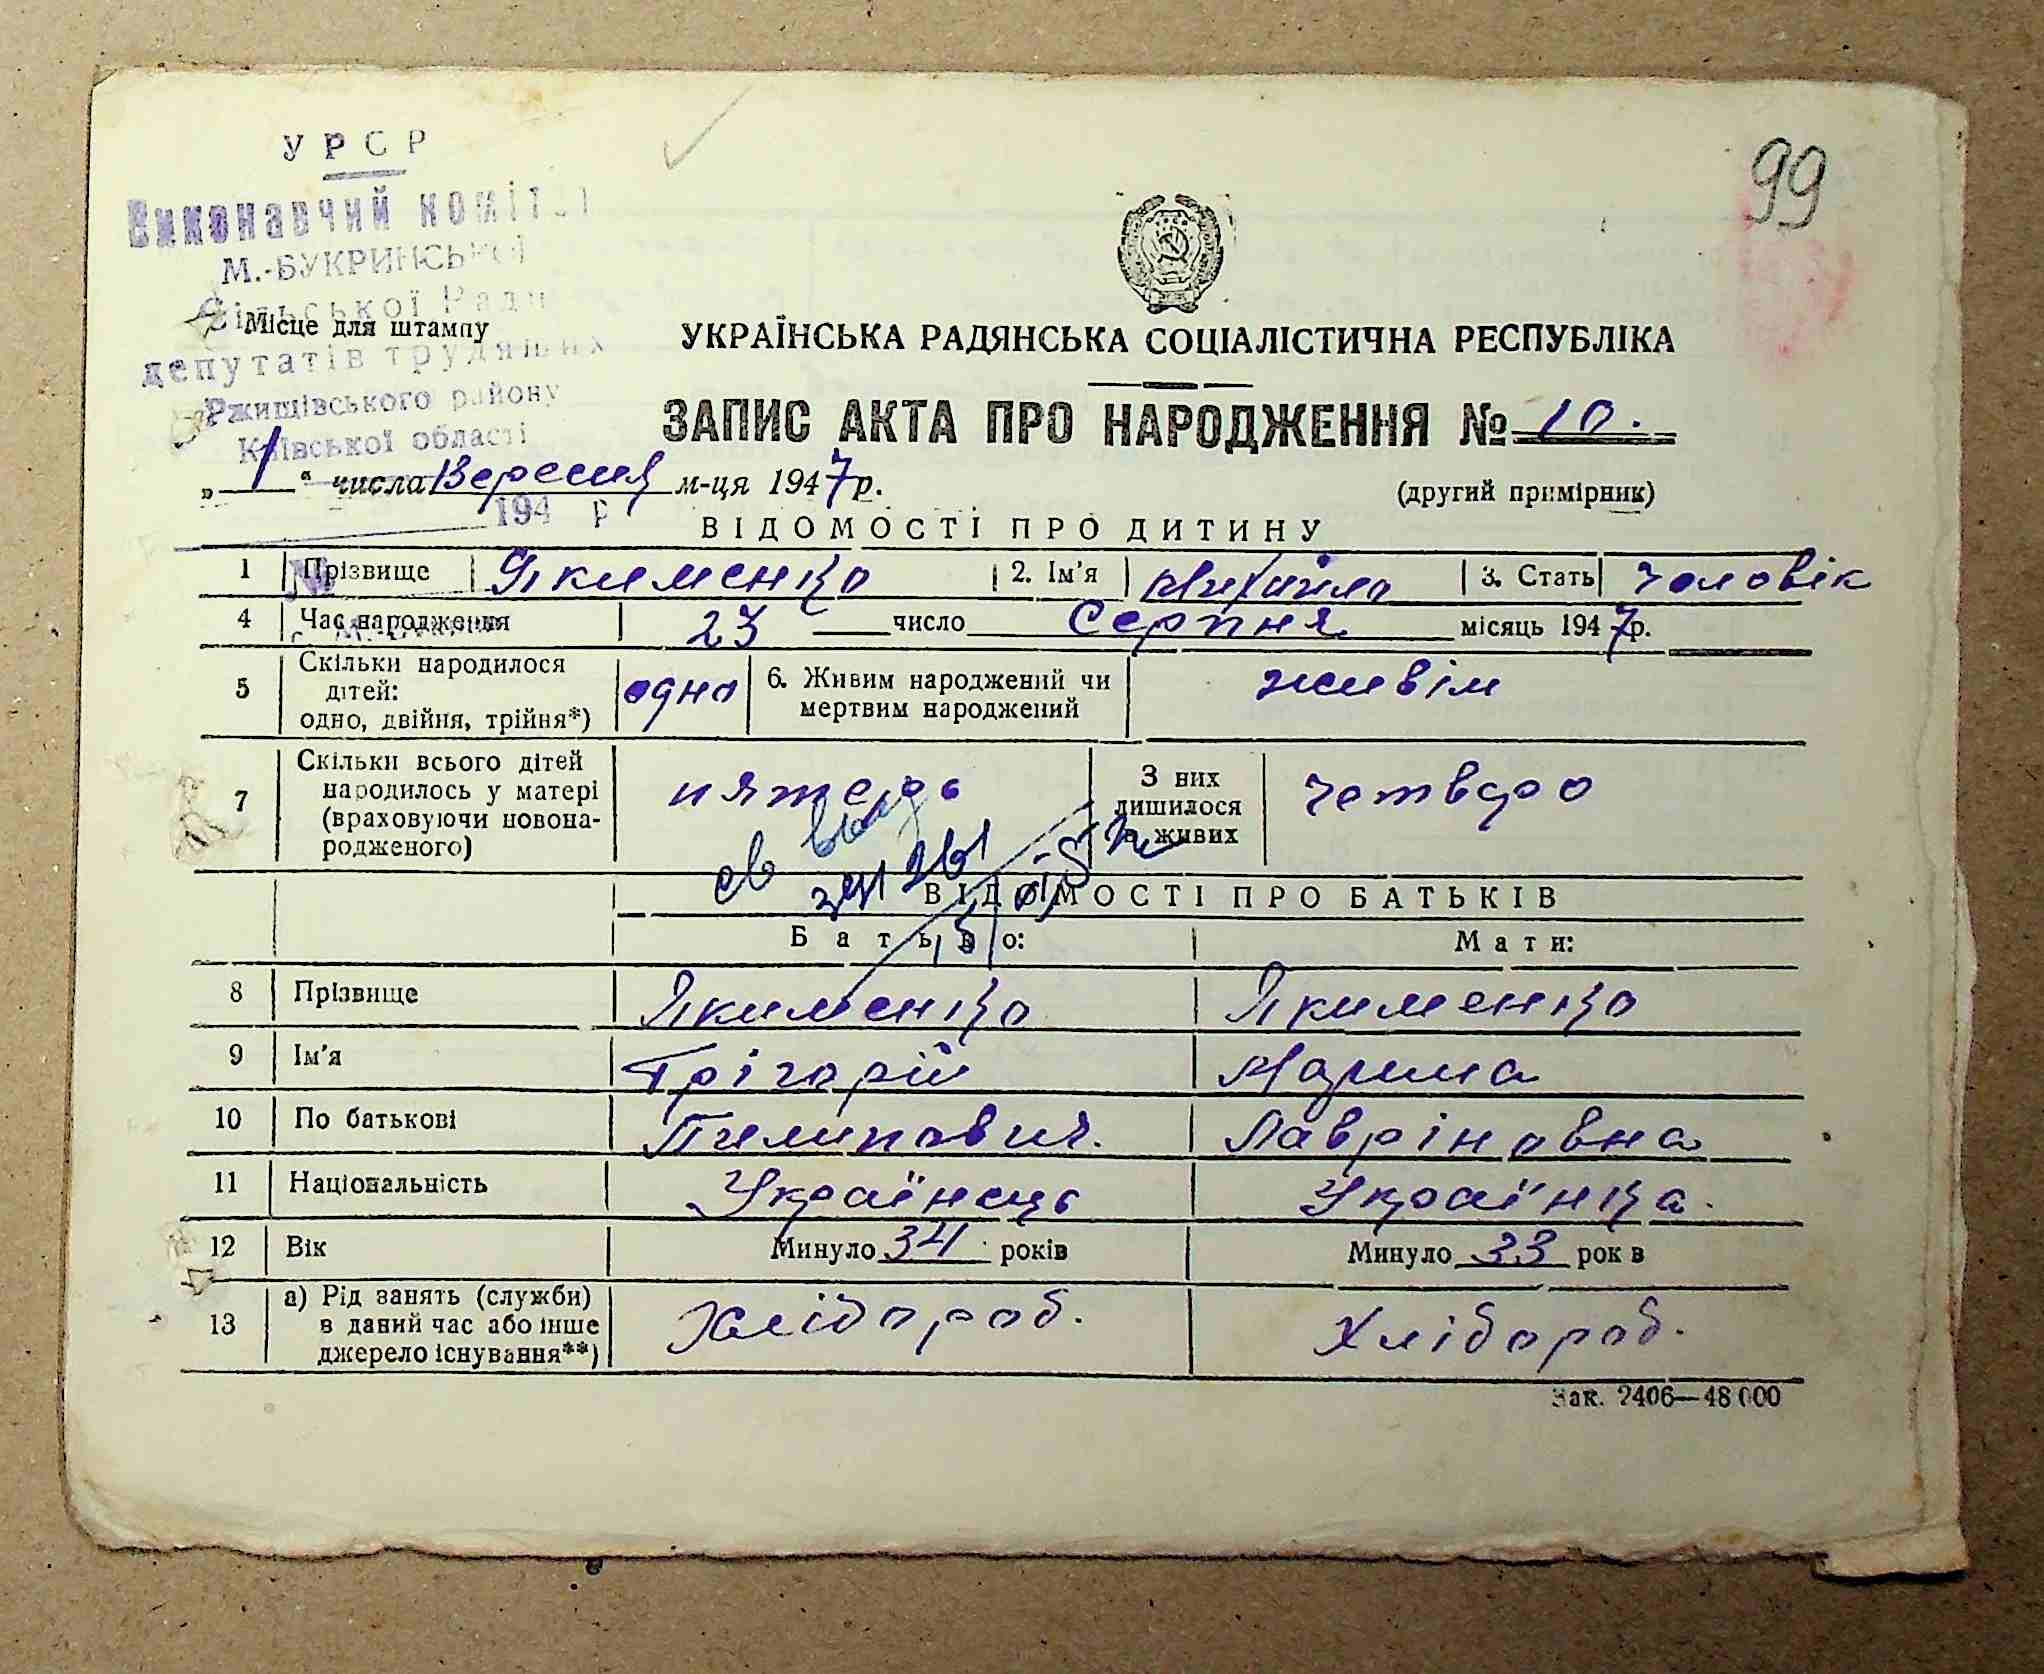 99
УРСР
Виконавчий комітет
М.-БУКРИНСЬКОЇ
Сільської Ради
Місце для штампу
депутатів трудящих
Ржищівського району
Київської області
194 р
УКРАЇНСЬКА РАДЯНСЬКА СОЦІАЛІСТИЧНА РЕСПУБЛІКА
ЗАПИС АКТА ПРО НАРОДЖЕННЯ № 10.
„ 1 " числа Вересня м-ця 1947 р.
(другий примірник)
ВІДОМОСТІ ПРО ДИТИНУ
1 Прізвище Якименко 2. Ім'я Михайло 3. Стать чоловік
4 Час народження 23 число Серпня місяць 1947 р.
5 Скільки народилося дітей: одно, двійня, трійня*) одно 6. Живим народжений чи мертвим народжений живім
7 Скільки всього дітей народилось у матері (враховуючи новонародженого) пятеро З них лишилося в живих четверо
ВІДОМОСТІ ПРО БАТЬКІВ
Батько: Мати:
8 Прізвище Якименко Якименко
9 Ім'я Грігорій Марина
10 По батькові Пилипович. Лавріновна
11 Національність Українець Українка.
12 Вік Минуло 34 років Минуло 33 рок в
13 а) Рід занять (служби) в даний час або інше джерело існування**) Хлібороб. Хлібороб.
Зак. 2406—48 000